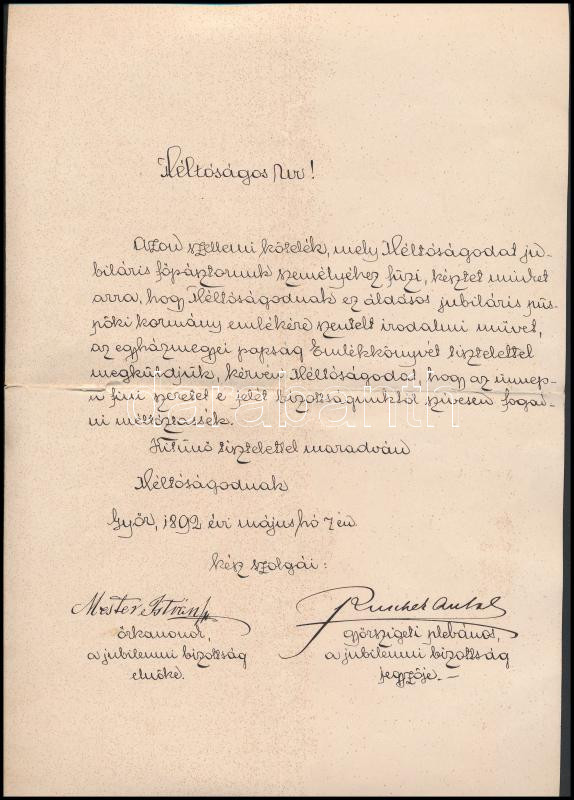 Méltóságos Ur!
Azon szellemi kötelék, mely Méltóságodat ju-
biláris főpásztorunk személyéhez fűzi, késztet minket
arra, hogy Méltóságodnak ez áldásos jubiláris püs-
pöki kormány emlékére szentelt irodalmi művet,
az egyházmegyei papság Emlékkönyvét tisztelettel
megküldjük, kérvén Méltóságodat, hogy az ünnep-
i fiúi szeretet e jelét bizottságunktól szivesen fogad-
ni méltóztassék.
Kitünő tisztelettel maradván
Méltóságodnak
Győr, 1892 évi május hó 7-én
kész szolgái:
Mester István
őrkanonok,
a jubileumi bizottság
elnöke.
Ruschek Antal
győrszigeti plébános,
a jubileumi bizottság
jegyzője. –
darabanth